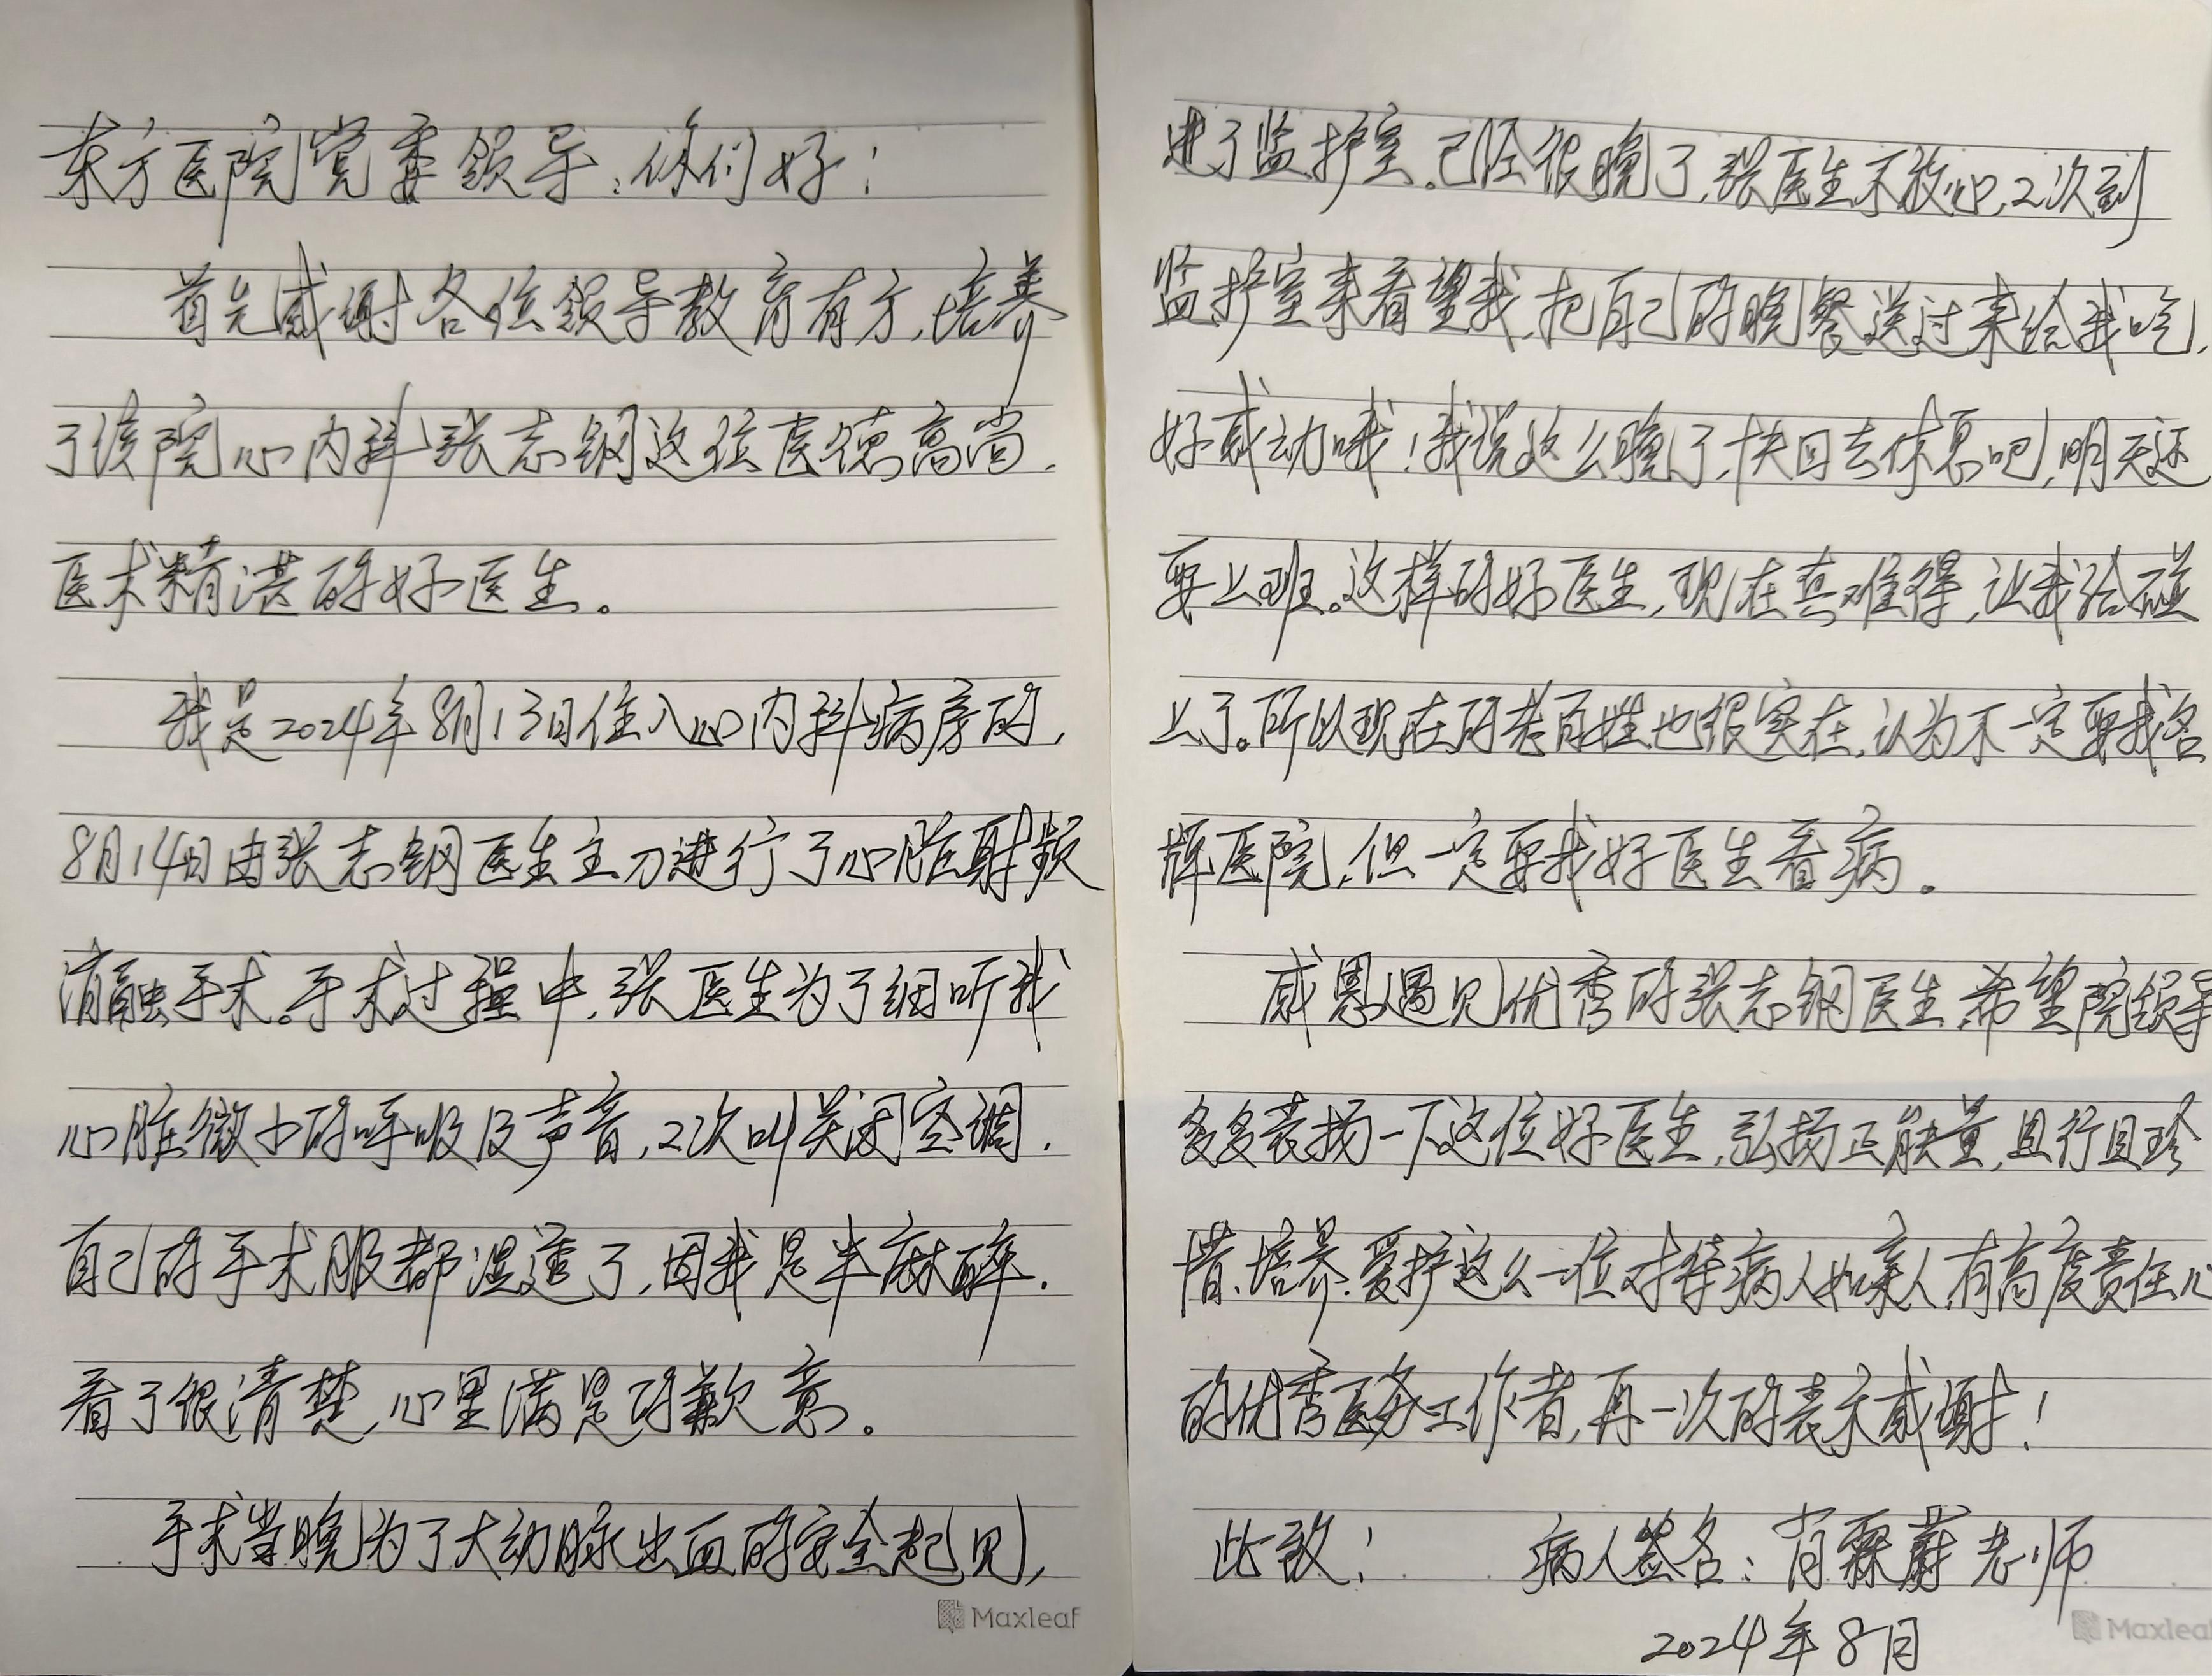 东方医院党委领导:你们好!
首先感谢各位领导教育有方,培养
了该院心内科张志钢这位医德高尚.
医术精湛的好医生。
我是2024年8月13日住入心内科病房的,
8月14日由张志钢医生主刀进行了心脏射频
消融手术。手术过程中,张医生为了细听我
心脏微小的呼吸及声音,2次叫关闭空调.
自己的手术服都湿透了,因我是半麻醉.
看了很清楚,心里满是的歉意。
手术当晚为了大动脉出血的安全起见,
Maxleaf
进了监护室。已经很晚了,张医生不放心,2次到
监护室来看望我,把自己的晚餐送过来给我吃,
好感动哦!我说这么晚了,快回去休息吧,明天还
要上班。这样的好医生,现在真难得,让我给碰
上了。所以现在的老百姓也很实在,认为不一定要找名
牌医院,但一定要找好医生看病。
感恩遇见优秀的张志钢医生,希望院领导
多多表扬一下这位好医生,弘扬正能量,且行且珍
惜、培养、爱护这么一位对待病人如亲人,有高度责任心
的优秀医务工作者,再一次的表示感谢!
此致! 病人签名:肖霖蔚老师
2024年8月
Maxleaf